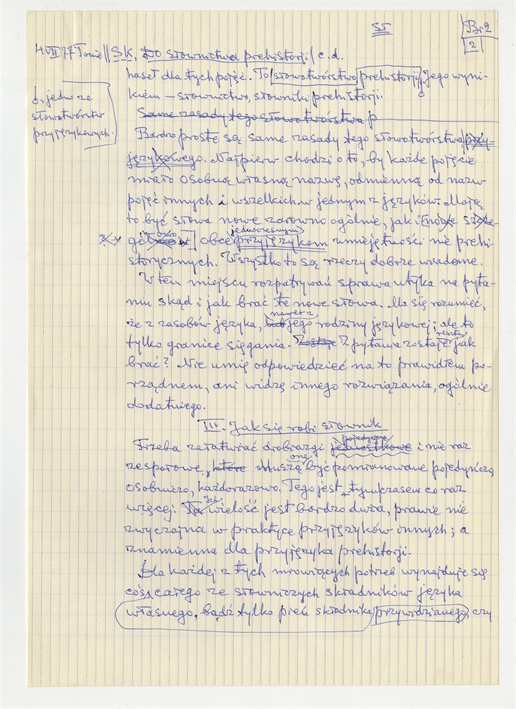 SI
Br 2
2
4 VII 77 Tonie // SK, Do słownictwa prehistorji / c. d.
haseł dla tych pojęć. To słowotwórstwo prehistorji, jego wyni-
kiem – słownictwo, słowniki prehistorji.
Same zasady tego słowotwórstwa p
słowotwórstw
przyjęzykowych.
Bardzo proste są same zasady tego słowotwórstwa przy-
językowego. Najpierw chodzi o to, by każde pojęcie
miało osobną własną nazwę, odmienną od nazw
pojęć innych i wszelkich w jednym z języków. Mają
to być słowa nowe zarówno ogólnie, jak i
obce przyjęzykom umiejętności nie prehi-
storycznych. Wszystko to są rzeczy dobrze wiadome.
W tem miejscu rozpatrywań sprawa utyka na pyta-
niu skąd i jak brać te nowe słowa. Ma się rozumieć,
że z zasobów języka, nawet z jego rodziny językowej; ale to
tylko granice sięgania. Z pytania zostaje reszta jak
brać? Nie umię odpowiedzieć na to prawidłem po-
rządnem, ani widzę innego rozwiązania, ogólnie
dodatniego.
III. Jak się robi słownik
Trzeba załatwiać drobiazgi pojedyncze i nie raz
zesporowe, które one muszą być pomianowane pojedyńczo,
osobniczo, każdorazowo. Tego jest tymczasem co raz
więcej. Ta wielość jest bardzo duża, prawie nie
zwyczajna w praktyce przyjęzyków innych; a
znamienna dla przyjęzyka prehistorji.
Dla każdej z tych mrowiących potrzeb wynajduje się
coś całego ze słowniczych składników języka
własnego, bądź tylko pień składnika przywidzianego, czy